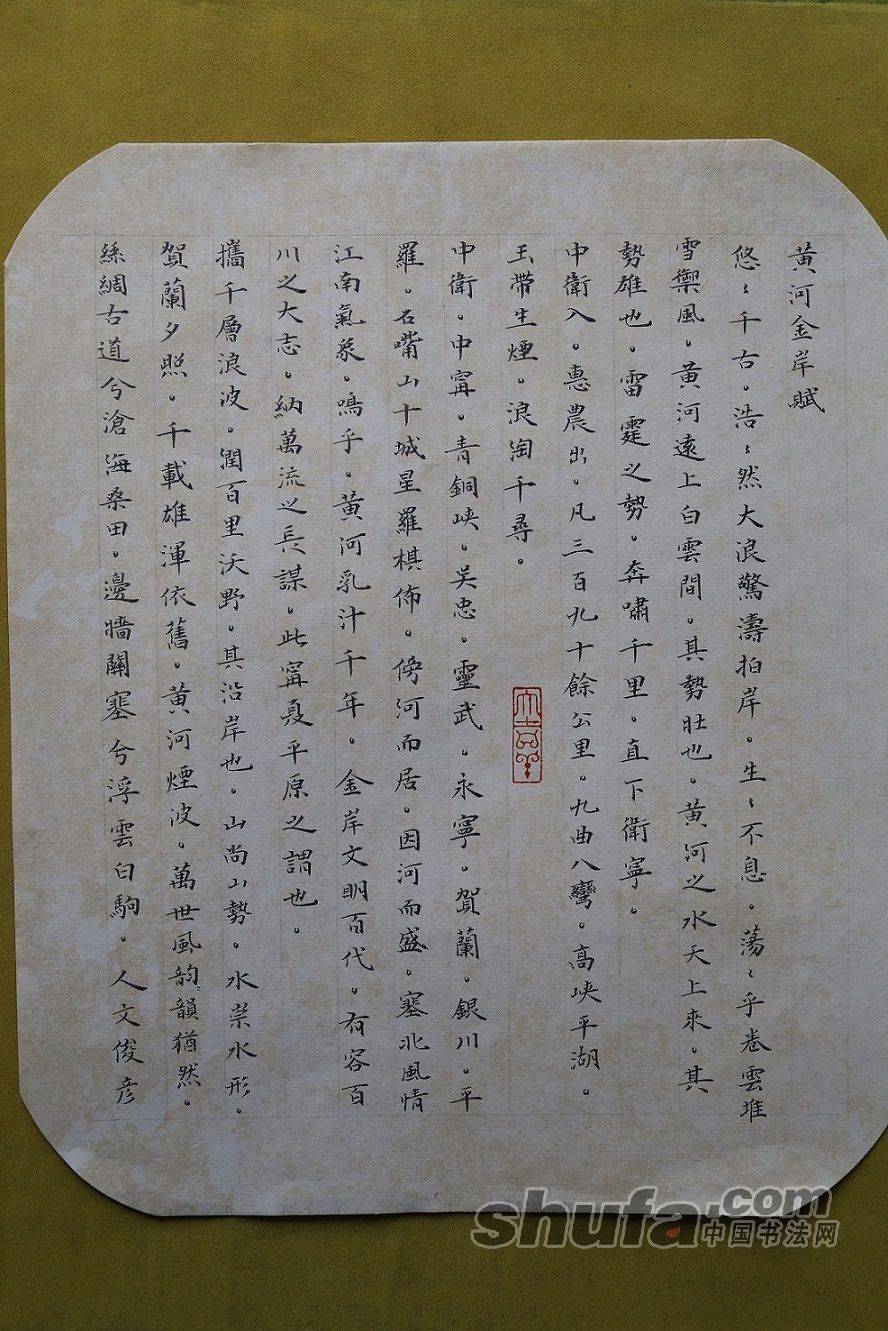 黃河金岸賦
悠〻千古。浩〻然大浪驚濤拍岸。生〻不息。蕩〻乎卷雲堆
雪禦風。黃河遠上白雲間。其勢旺也。黃河之水天上來。其
勢雄也。雷霆之勢。奔嘯千里。直下衛寧。
中衛入。惠農出。凡三百九十餘公里。九曲八彎。高峽平湖。
玉帶生煙。浪淘千尋。
中衛。中甯。青銅峽。吳忠。靈武。永寧。賀蘭。銀川。平
羅。石嘴山十城星羅棋佈。傍河而居。因河而盛。塞北風情
江南氣象。鳴乎。黃河乳汁千年。金岸文明百代。有容百
川之大志。納萬流之長謀。此甯夏平原之謂也。
攜千層浪波。潤百里沃野。其沿岸也。山尚山勢。水崇水形。
賀蘭夕照。千載雄渾依舊。黃河煙波。萬世風韵韻猶然。
絲綢古道兮滄海桑田。邊牆關塞兮浮雲白駒。人文俊彥
shufa.com
中国书法网